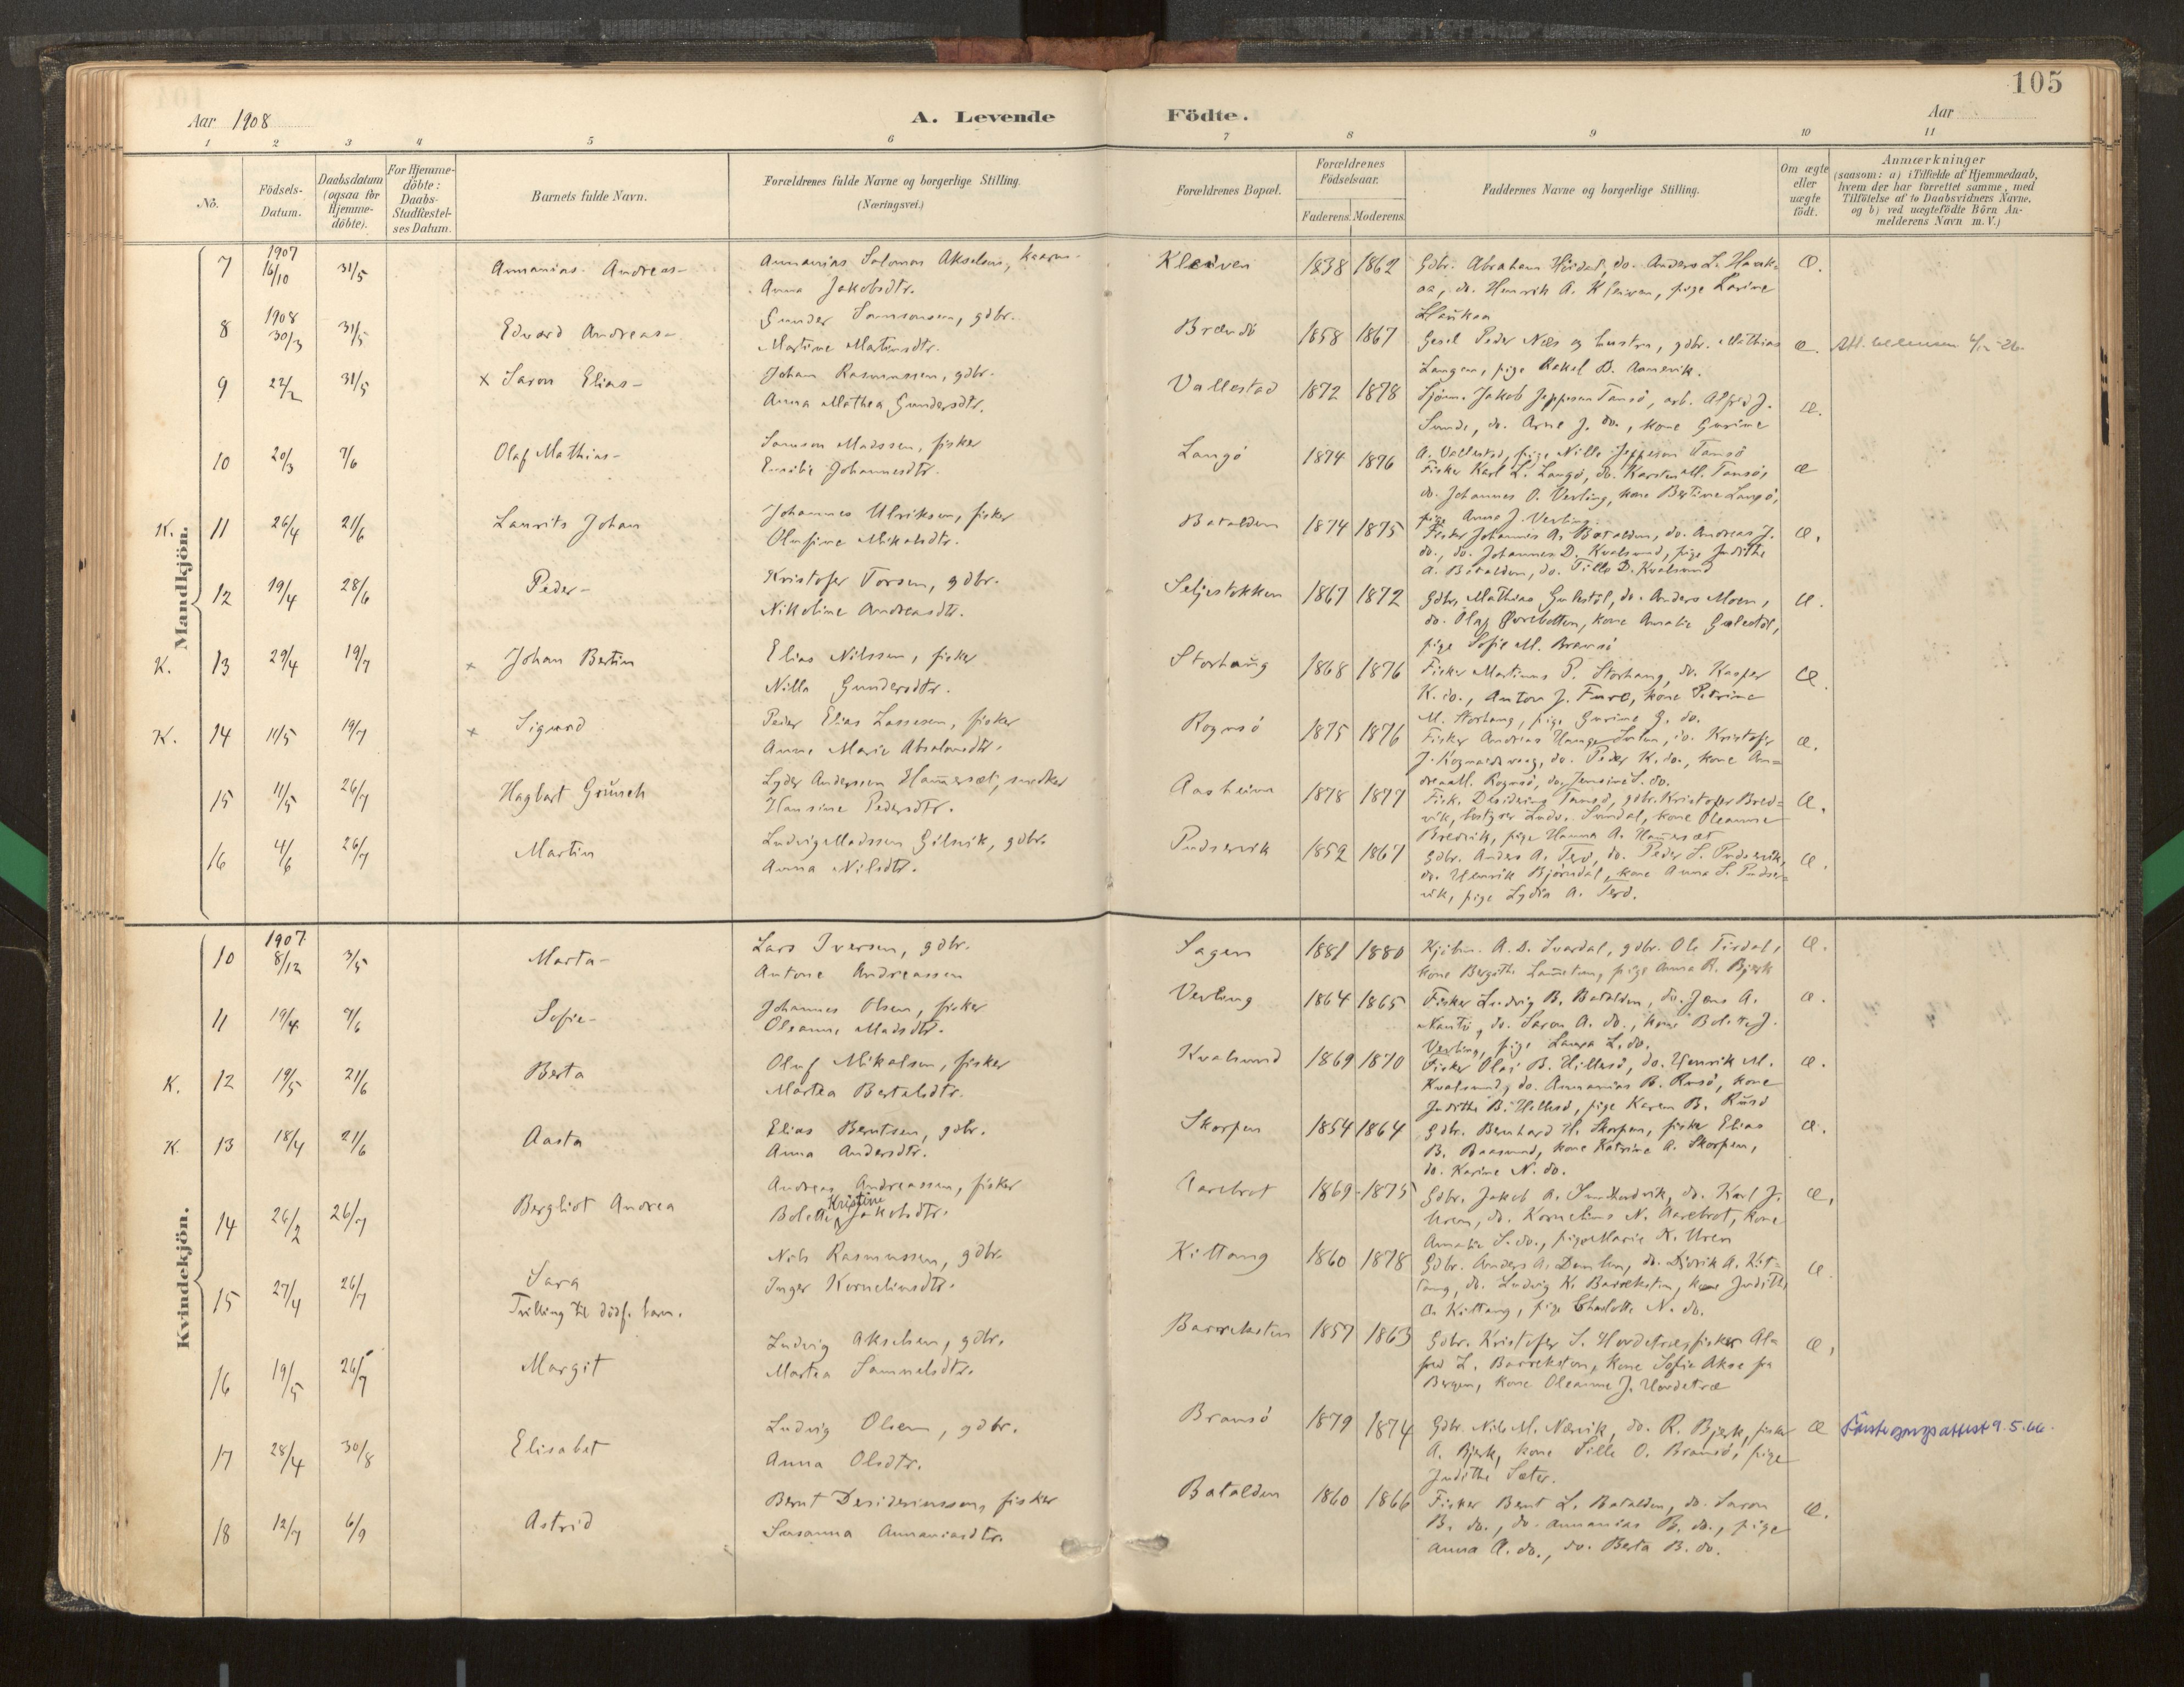 105
Aar 1908
A. Levende Födte.
Aar
1 2 3 4 5 6 7 8 9 10 11
No.
Födsels-Datum.
Daabsdatum (ogsaa för Hjemmedöbte).
For Hjemmedöbte: Daabs-Stadfæstelses Datum.
Barnets fulde Navn.
Forældrenes fulde Navne og borgerlige Stilling. (Næringsvei.)
Forældrenes Bopæl.
Forældrenes Födselsaar.
Faderens. Moderens.
Faddernes Navne og borgerlige Stilling.
Om ægte eller uægte födt.
Anmærkninger
(saasom: a) i Tilfælde af Hjemmedaab, hvem der har forrettet samme, med Tilföielse af to Daabsvidners Navne, og b) ved uægtefödte Börn Anmelderens Navn m. V.)
Mandkjön.
7 1907 16/10 31/5 Annanias Andreas- Annanias Salomon Akselsen, kaarm. Kleiven 1838 1862 Gdbr. Abraham Høidal, do. Anders L. Hauk= Æ.
Anna Jakobsdtr. aa, do. Henrik A. Kleiven, pige Larine
Haukaa
8 1908 30/3 31/5 Edvard Andreas- Gunder Samsonsen, gdbr. Brandö 1858 1867 Gesel Peder Nils og hustru, gdbr. Mathias Æ.
Martine Martinsdtr. Langen, pige Rakel B.
9 22/2 31/5 x Saron Elias- Johan Rasmussen, gdbr. Vallestad 1872 1878 Sjöm. Jakob Jeppesen Tansö, arb. Alfred J. Æ.
Anna Mathea Gundersdtr. Sunde, do. Arne J. do., kone Gurine
A. Vallestad, pige Nille Jeppesen Tansö
10 20/3 7/6 Olaf Mathias- Samson Madssen, fisker Langö 1874 1876 Fisker Karl L. Langö, do. Karsten M. Tansö, Æ
Emilie Johannesdtr. do. Johannes O. Verling, kone Bertine Langö,
pige Anna J. Verling.
K. 11 26/4 21/6 Laurits Johan Johannes Ulriksen, fisker Batalden 1874 1875 Fisker Johannes A. Batalden, do. Andreas J. Æ.
Olufine Mikalsdtr. do., do. Johannes D. Kvalsund, pige Judithe
A. Batalden, do. Tille D. Kvalsund
12 19/4 28/6 Peder- Kristofer Torsen, gdbr. Seljestokken 1867 1872 Gdbr. Mathias Gulestöl, do. Anders Moen, Æ.
Nikoline Andreasdtr. do. Olaf Övrebotten, kone Amalie Gulestöl,
pige Sofie M. Bramsö
K. 13 29/4 19/7 x Johan Bertin Elias Nilssen, fisker Storhaug 1868 1876 Fisker Martinus P. Storhaug, do. Kasper Æ.
Nilla Gundersdtr. K. do., Anton J. Fure, kone Petrine
M. Storhaug, pige Gurine G. do.
K. 14 11/5 19/7 x Sigurd Peder Elias Lassesen, fisker Rognsö 1875 1876 Fisker Andreas do. Kristofer Æ.
Anne Marie Absalonsdtr. J. do. Peder K. do., kone An=
M. Rognsö, do. do.
15 11/5 26/7 Hagbart Grüner Lyder Anderssen Hammersæt, snedker Aasheim 1878 1877 Fisk. Desidering Tansö, gdbr. Kristofer Bred= Æ.
Hansine Pedersdtr. vik, Ludv. Sundal, kone Oleanna
Bredvik, pige Hanna A. Hammersæt
16 4/6 26/7 Martin Ludvig Madssen Gilsvik, gdbr. Pudservik 1852 1867 Gdbr. Anders A. Terö, do. Peder S. Pudservik, Æ.
Anna Nilsdtr. do. Henrik Björndal, kone Anna S. Pudser=
vik, pige Lydia A. Terö.
Kvindekjön.
10 1907 8/12 3/5 Marta- Lars Iversen, gdbr. Sagen 1881 1880 Kjöbm. A. D. Svardal, gdbr. Ole Tirdal, Æ.
Antone Andreassen kone Bergithe, pige Anna R. Bjerk
11 19/4 7/6 Sofie- Johannes Olsen, fisker Verling 1864 1865 Fisker Ludvig B. Batalden, do. Jens A. Æ.
Oleanne Madsdtr. do. Saron A. do., kone Bolette J.
Verling, pige Laura L. do.
K. 12 19/5 21/6 Berta Oluf Mikalsen, fisker Kvalsund 1869 1870 Fisker Olai B. Hillesö, do. Henrik M. Æ.
Martea Bertelsdtr. Kvalsund, do. Annanias B. Rusö, kone
Judithe B. Hillesö, pige Karen B. Rusö
K. 13 18/4 21/6 Aasta Elias Berntsen, gdbr. Skorpen 1854 1864 Gdbr. Bernhard H. Skorpen, fisker Elias Æ.
Anna Andersdtr. B. Baasund, kone Katrine A. Skorpen,
do. Karine N. do.
14 26/2 26/7 Bergliot Andrea Andreas Andreassen, fisker Aarebrot 1869 1875 Gdbr. Jakob A., do. Karl J. Æ.
Bolette Kristine Jakobsdtr. Uren, do. Kornelius N. Aarebrot, kone
Amalie S. do., pige Marie K. Uren
15 27/4 26/7 Sara Nils Rasmussen, gdbr. Kittang 1860 1878 Gdbr. Anders A., do. Didrik A. Kit= Æ
Tvilling til dödf. barn. Inger Korneliusdtr. tang, do. Ludvig K. Barreksten, kone Judithe
A. Kittang, pige Charlotte N. do.
16 19/5 26/7 Margit Ludvig Akselsen, gdbr. Barreksten 1857 1863 Gdbr. Kristofer S. Hordetræ, fisker Al= Æ.
Martea Samuelsdtr. fred L. Barreksten, kone Sofie Akse fra
Bergen, kone Oleanne J. Hordetræ
17 28/4 30/8 Elisabet Ludvig Olsen, gdbr. Bramsö 1879 1874 Gdbr. Nils M. Nærvik, do. R. Bjerk, fisker Æ Förstegangsattest 9.5.66.
Anna Olsdtr. A. Bjerk, kone Sille O. Bramsö, pige
Judithe Sæter.
18 12/7 6/9 Astrid Bernt Desideriussen, fisker Batalden 1860 1866 Fisker Bernt L. Batalden, do. Saron Æ.
Susanna Annaniasdtr. B. do., do. Annanias B. do., pige
Anna A. do., do. Berta B. do.